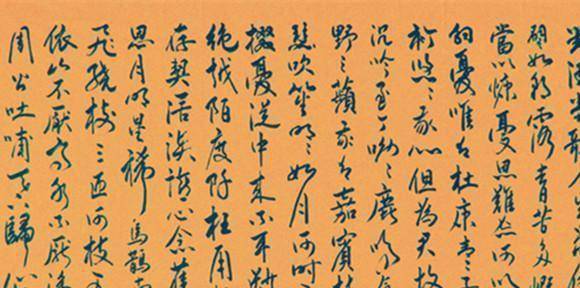 譬如朝露去日苦多慨
當以慷憂思難忘何以
解憂唯有杜康青青子
衿悠悠我心但為君故
沉吟至今呦呦鹿鳴食
野之蘋我有嘉賓鼓
瑟吹笙明明如月何時
掇憂從中來不可斷
絕越陌度阡枉用
存契闊談讌心念舊
恩月明星稀烏鵲南
飛繞枝三匝何枝可
依山不厭高水不厭深
周公吐哺天下歸心